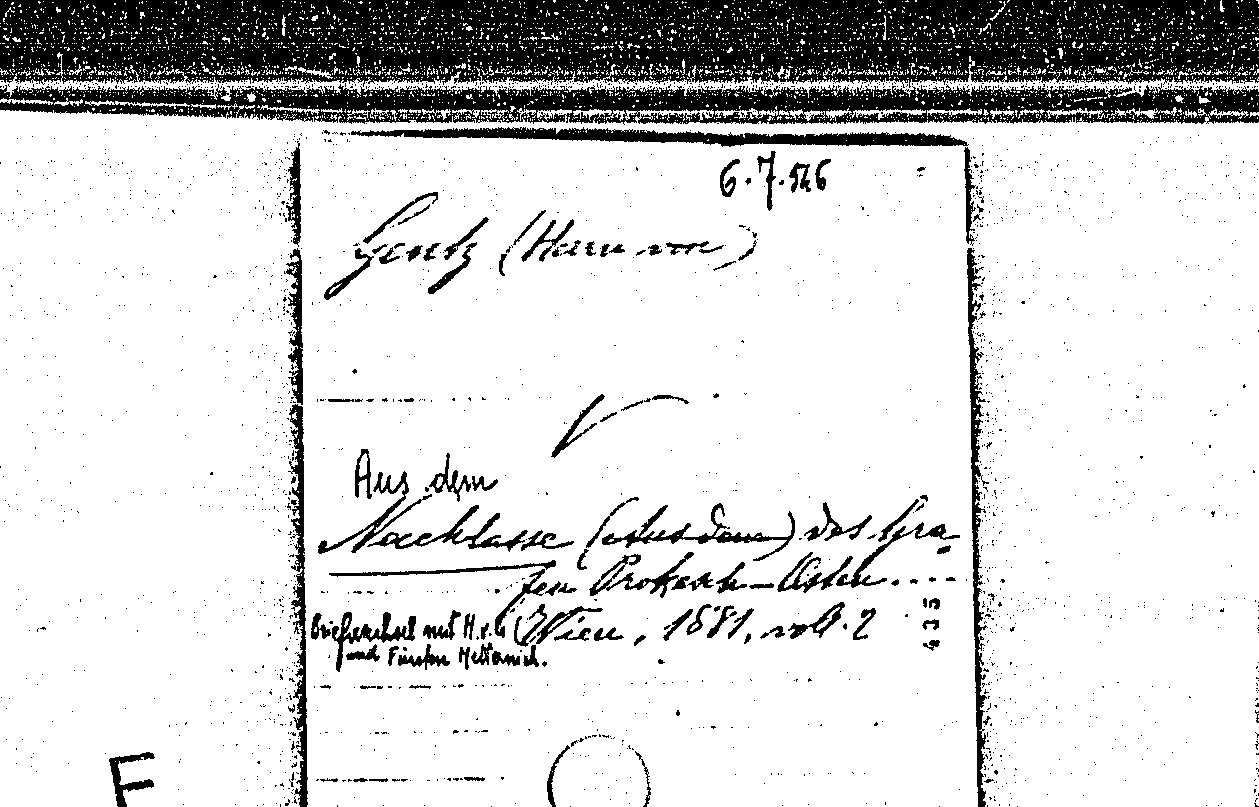 6.7.546
Gentz (Herrn von)
Aus dem
Nachlasse (Aus dem) des Gra-
fen Prokesch-Osten....
Briefwechsel mit H.v.G (Wien, 1881, vol. 2
und Fürsten Metternich.
435
F